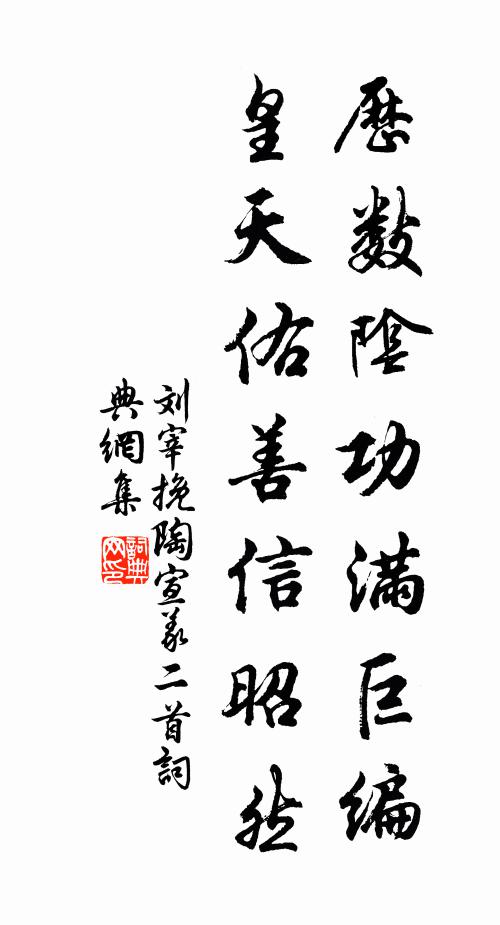 歷數陰功滿巨編
皇天佑善信昭然
刘宰挽陶宣義二首詞
典網集
詞典
网印